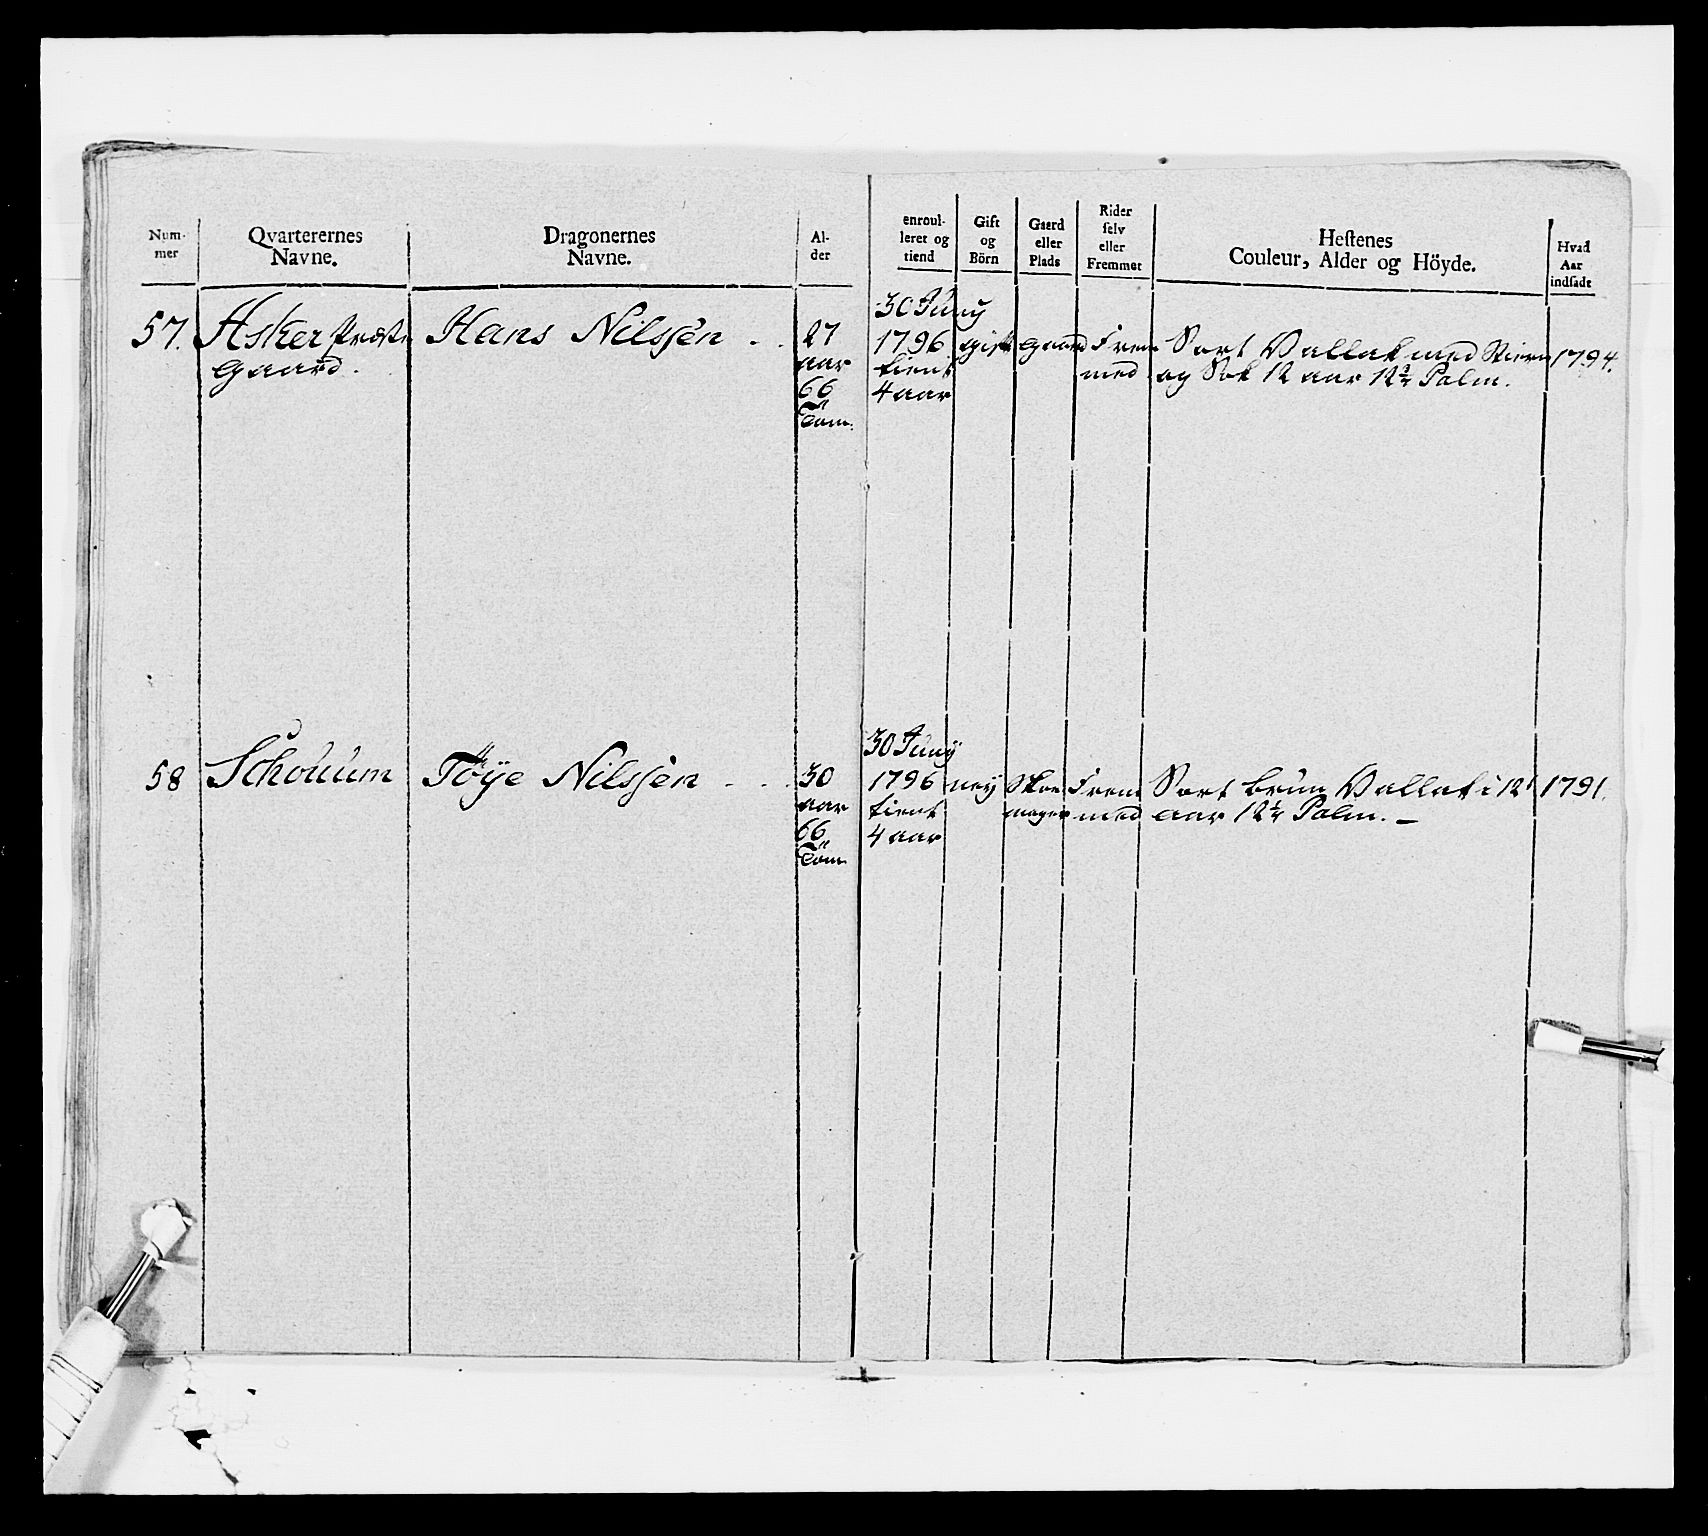 Num-
mer
Qvarterernes
Navne.
Dragonernes
Navne.
Al-
der
enroul-
leret og
tiend
Gift
og
Börn
Gaard
eller
Plads
Rider
selv
eller
Fremmet
Hestenes
Couleur, Alder og Höyde.
Hvad
Aar
indsadt
57. Asker Præste
Gaard.
Hans Nilssen
27
aar
66
Tom.
30 Juny
1796
tient
4 aar
gift
Gaard
Frem
med
Sort Vallak med Stiern
og Sok 12 aar 12¾ Palm.
1794.
58 Schouum
Töye Nilssen
30
aar
66
Tom
30 Juny
1796
tient
4 aar
ney
Skoe
mager
Frem
med
Sort brun Vallak i 12
aar 12¼ Palm.
1791.